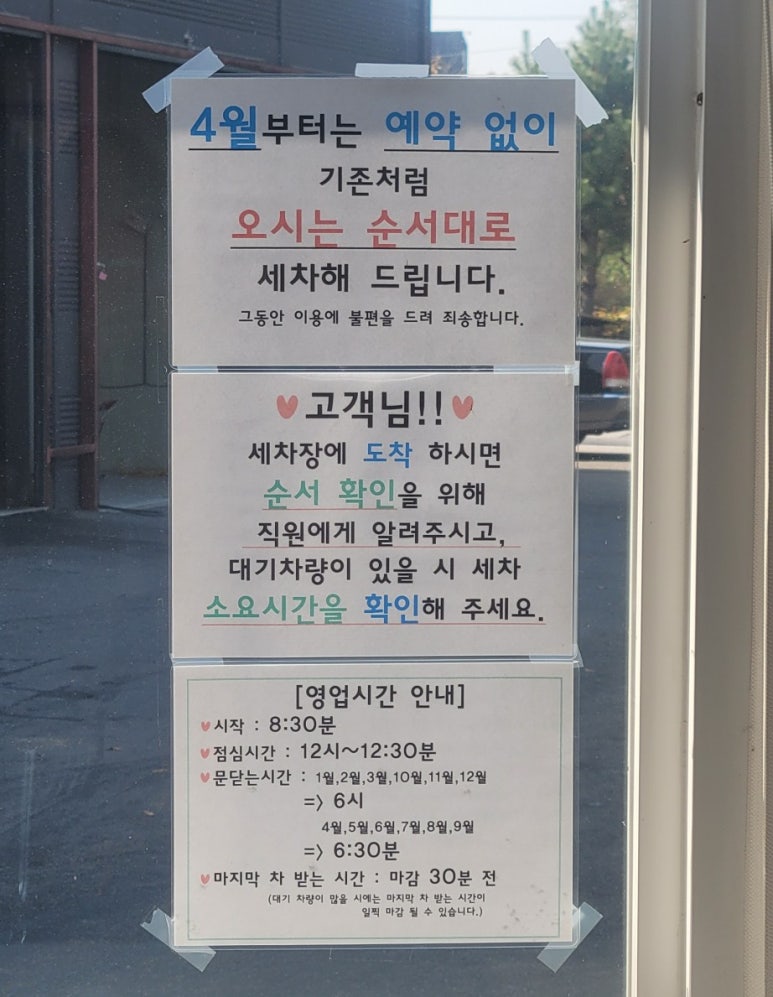 4월부터는 예약 없이
기존처럼
오시는 순서대로
세차해 드립니다.
그동안 이용에 불편을 드려 죄송합니다.
♥고객님!!♥
세차장에 도착 하시면
순서 확인을 위해
직원에게 알려주시고,
대기차량이 있을 시 세차
소요시간을 확인해 주세요.
[영업시간 안내]
♥시작 : 8:30분
♥점심시간 : 12시~12:30분
♥문닫는시간 : 1월,2월,3월,10월,11월,12월
=> 6시
4월,5월,6월,7월,8월,9월
=> 6:30분
♥마지막 차 받는 시간 : 마감 30분 전
(대기 차량이 많을 시에는 마지막 차 받는 시간이
일찍 마감 될 수 있습니다.)